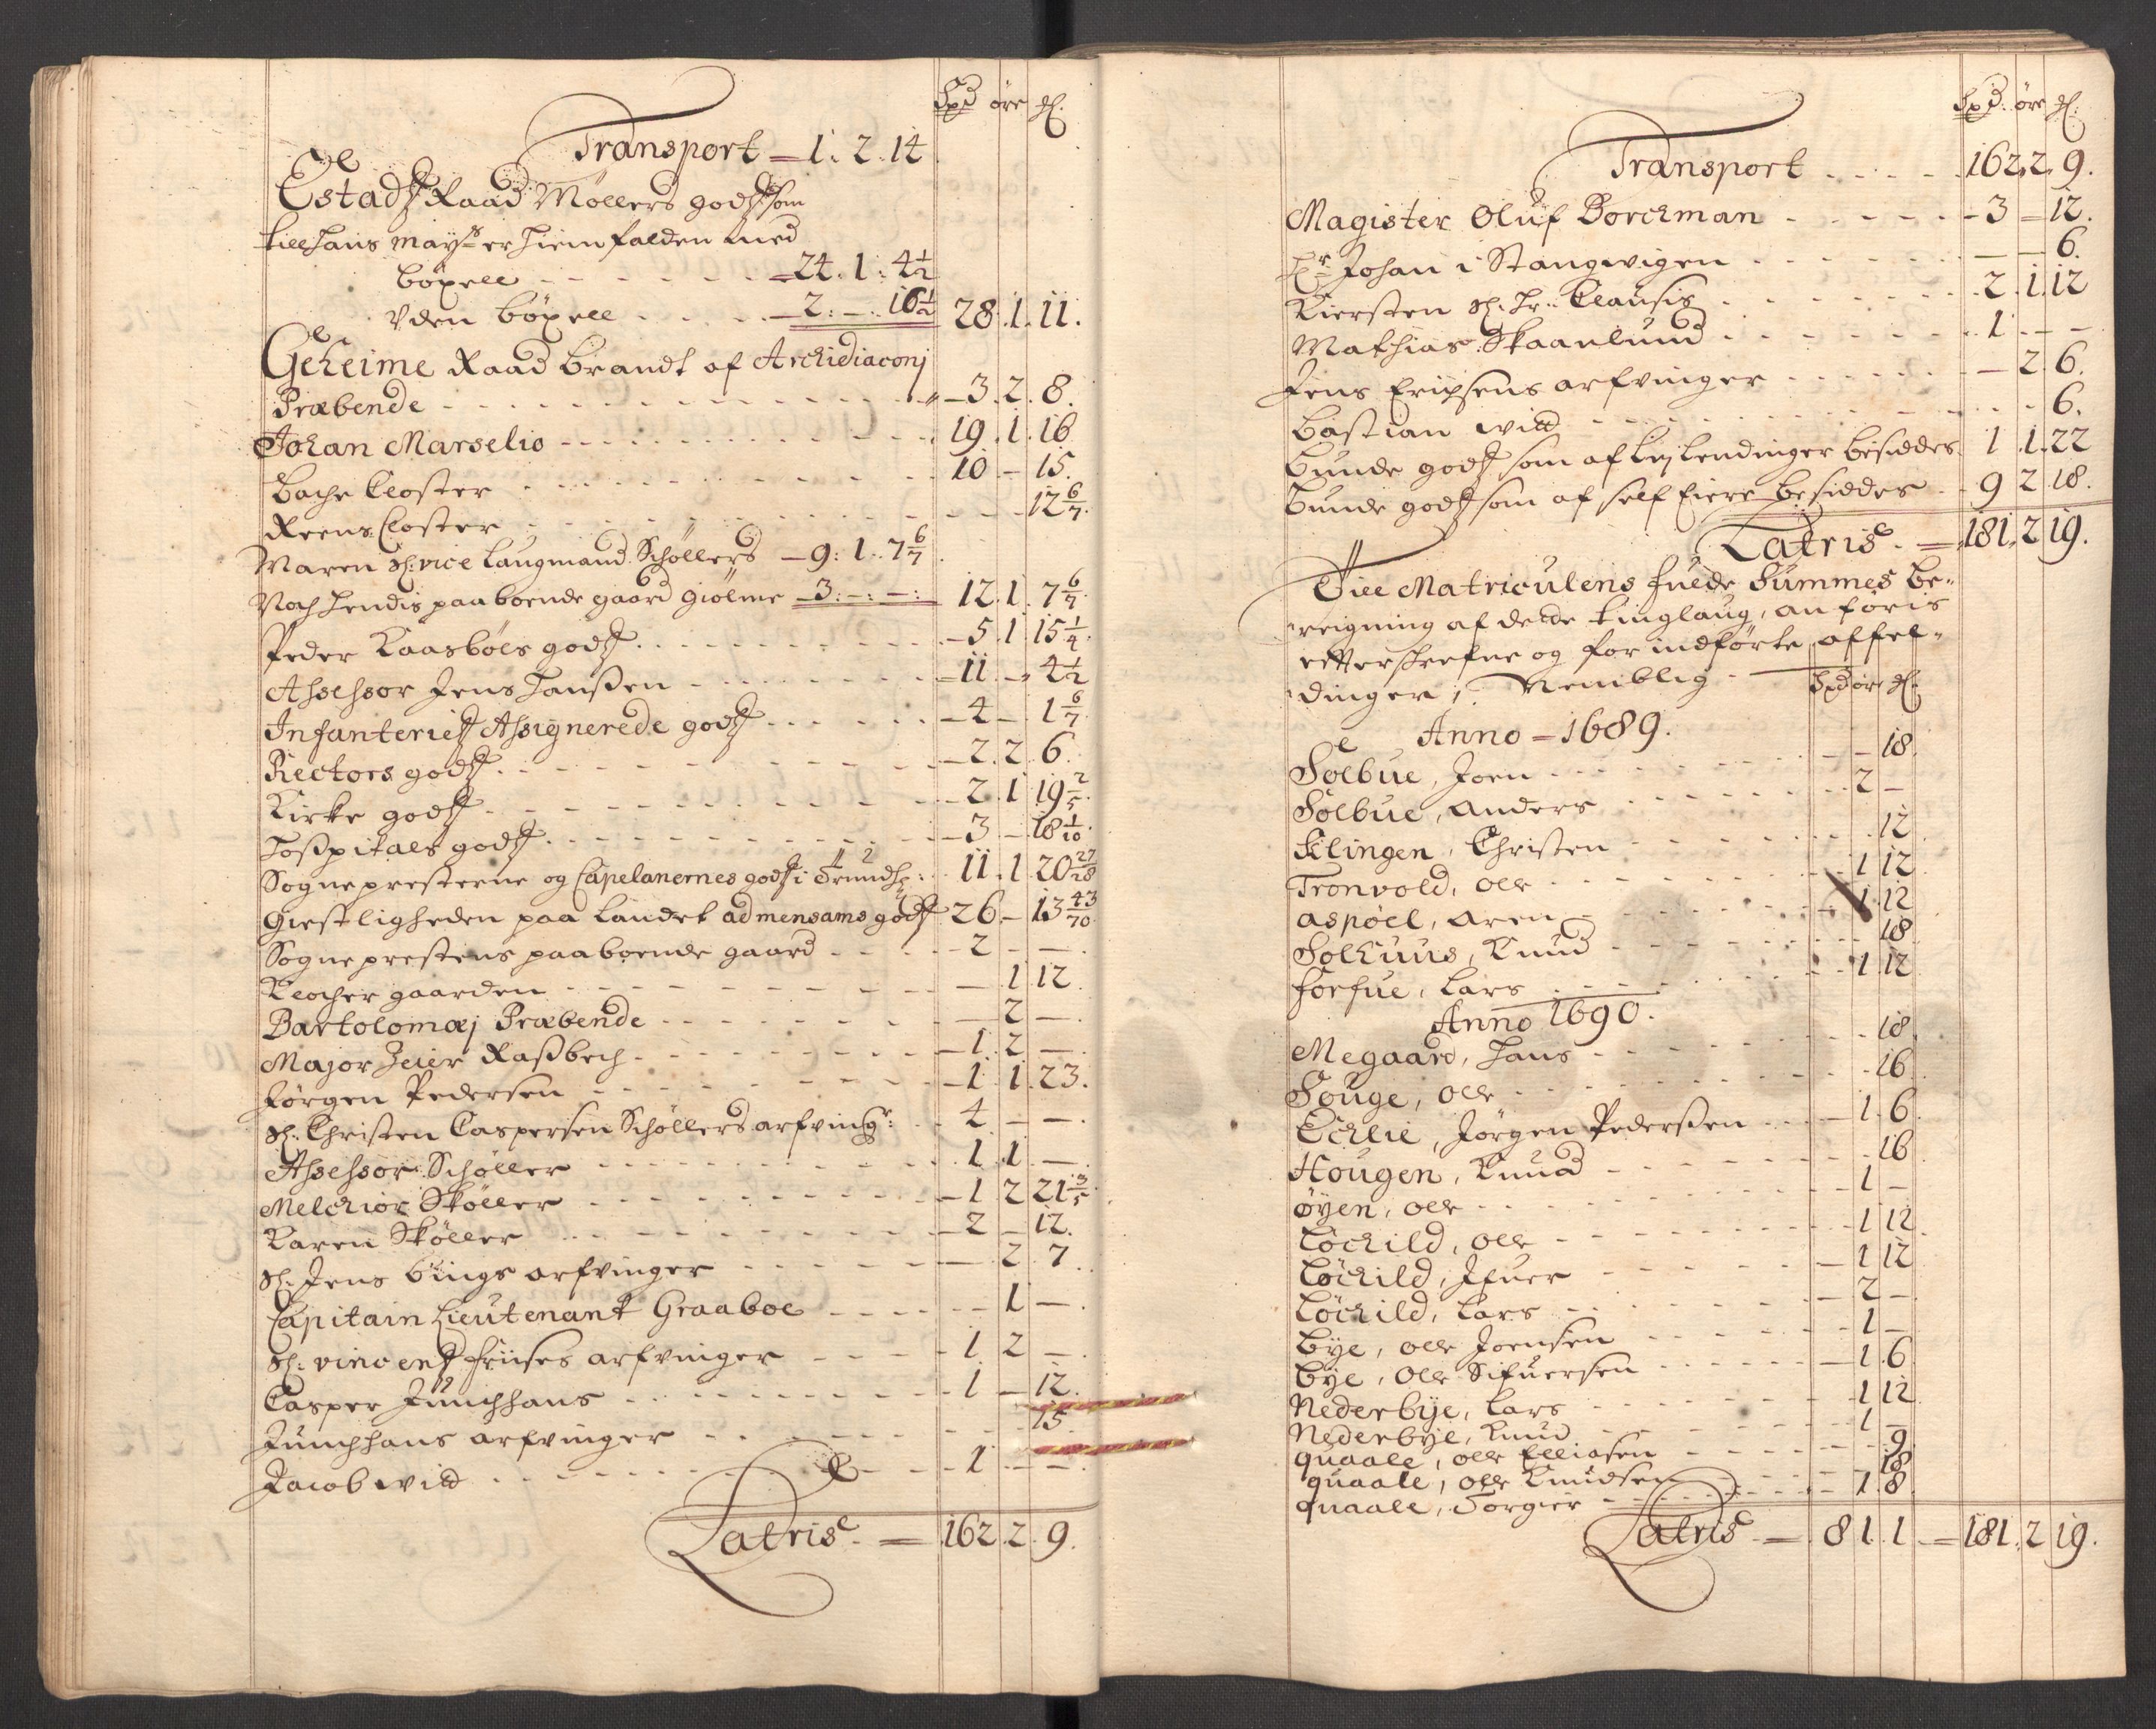 Spd øre ℳ
Transport — 1. 2. 14
Estads Raad Møllers gods som
till hans mayts er hiemfalden med
böxell - - - 24. 1. 4 1/2
Uden böxell - - - 2. — 16 1/2 28. 1. 11.
Geheime Raad Brandt af Archidiaconj
Præbende - - - 3. 2. 8.
Johan Marselio - - - 19. 1. 16
Bache Closter - - - 10 — 15.
Reens Closter - - - 12 6/7.
Maren Sl: vice Laugmand Schøllers — 9: 1. 7 6/7
Noch hendis paaboende gaard Giölme — 3: —: —: 12. 1. 7 6/7.
Peder Kaasböls gods - - - 5. 1 15 1/4.
Assessor Jens Hanßen - - - 11. — 4 1/2
Infanteries Assignerede gods - - - 4 — 1 6/7
Rectors gods - - - 2. 2. 6.
Kirke gods - - - 2. 1. 19 2/5.
Hoßpitals gods - - - 3 — 18 1/10.
Sognepresterne og Capelanernes gods i Trundh: 11. 1 20 27/28
Giestligheden paa Landet ad mensams gods 26 — 13 43/70.
Sogneprestens paaboende gaard - - - 2 — —
Klocher gaarden - - - — 1 12.
Bartolomæj Præbende - - - — 2 —
Major Heier Raßbech - - - 1. 2. —
Jørgen Pedersen - - - 1. 1. 23.
Sl: Christen Caspersen Schøllers arfvingr: 4 — —
Assessor Schøller - - - 1. 1. —
Melchior Skøller - - - 1 2 21 3/5
Karen Skøller - - - 2 — 12.
Sl: Jens Bings arfvinger - - - — 2. 7.
Capitain Lieutenant Graaboe - - - 1 —.
Sl: vincents Friises arfvinger - - - 1 2 —.
Casper Jünchhans - - - 1 — 12.
Jünchhans arfvinger - - - 15.
Jacob wild - - - 1 — —.
Latris — 162. 2. 9.
Spd: øre ℳ:
Transport - - - 162. 2. 9.
Magister Oluf Borchman - - - 3 — 12.
Hr Johan i Stangvigen - - - — — 6.
Kiersten Sl. Hr. Clausis - - - 2. 1. 12
Mathias Skaanlund - - - 1 — —
Jens Erichsens arfvinger - - - — 2. 6.
Bastian wild - - - 6.
Bunde gods som af Lejlendinger besiddes 1. 1. 22
Bunde gods som af self Eiere besiddes 9 2 18.
Latris — 181. 2 19.
Till Matriculens fulde Summes be-
reigning af dette tinglaug, anføris
efterskrefne og for indførte affel-
dinger; Nemblig Spd øre ℳ
Anno — 1689.
Sølbue, Joen - - - — 18.
Sølbue, Anders - - - 2 —
Klingen, Christen - - - 12
Tronvold, olle - - - 1 12
aspøel, Aren - - - 1 12
Solhuus, Knud - - - 18
Forfue, Lars - - - 1. 12
Anno 1690.
Megaard, Hans - - - 18
Souge, olle - - - 16
Echlie, Jørgen Pederßen - - - 1. 6.
Hougen, Knud - - - 16
Øyen, olle - - - 1 —
Löchild, olle - - - 1 12
Löchild, Ifuer - - - 1 12
Löchild, Lars - - - 2 —
Bye, olle Joensen - - - 1 —
Bye, olle Sifuersen - - - 1. 6
Nederbye, Lars - - - 1 12
Nederbye, Knud - - - 1 —
quaale, olle Elliasen - - - 9
quaale, olle Knudsen - - - 18
quaale, Torgier - - - 1. 8
Latris — 8 1. 1. — 181. 2 19.